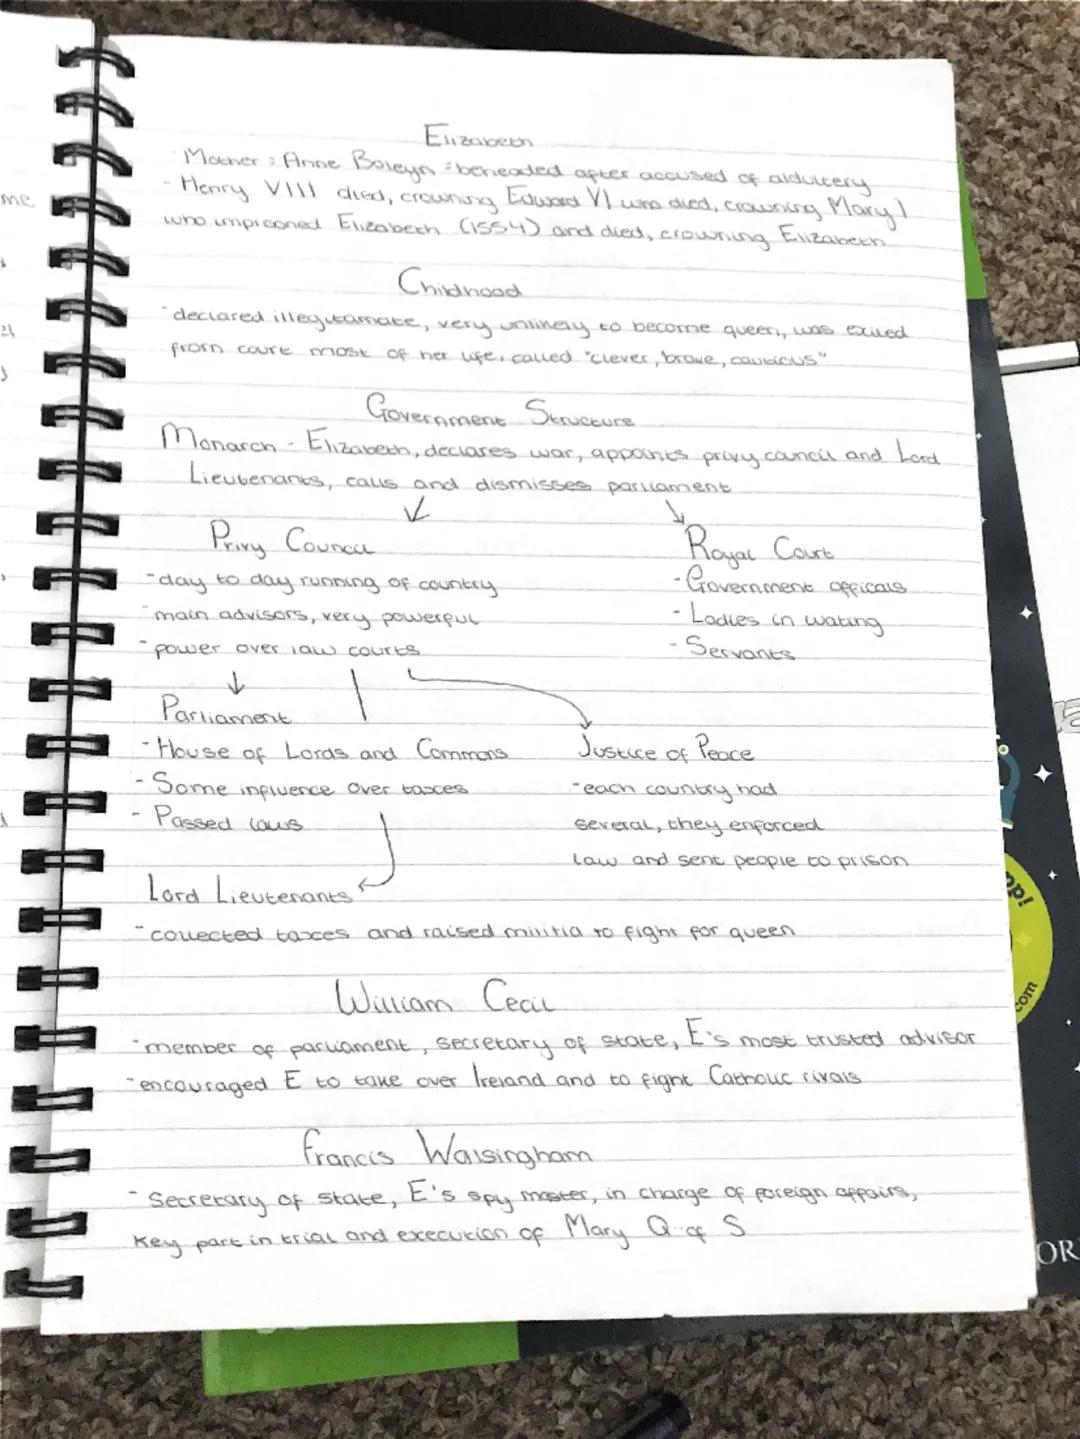 Elizabeth
Mother : Anne Boleyn - beheaded after accused of aldultery
- Henry VIII died, crowning Edward VI who died, crowning Mary I
who impriconed Elizabeth (1554) and died, crowning Elizabeth
Childhood
- declared illegutamate, very unlikely to become queen, was exiled
from court most of her life, called "clever, brave, cautious"
Government Structure
Monarch - Elizabeth, declares war, appoints privy council and Lord
Lieutenants, calls and dismisses parliament
Privy Council
- day to day running of country
- main advisors, very powerful
- power over law courts
Royal Court
- Government officals
- Ladies in wating
- Servants
Parliament
- House of Lords and Commons
- Some influence over taxes
- Passed laws
Justice of Peace
- each country had
several, they enforced
law and sent people to prison
Lord Lieutenants
- collected taxes and raised militia to fight for queen
William Cecil
- member of parliament, secretary of state, E's most trusted advisor
- encouraged E to take over Ireland and to fight Catholic rivals
Francis Walsingham
- Secretary of state, E's spy master, in charge of foreign affairs,
key part in trial and execution of Mary Q of S
me
com
OR